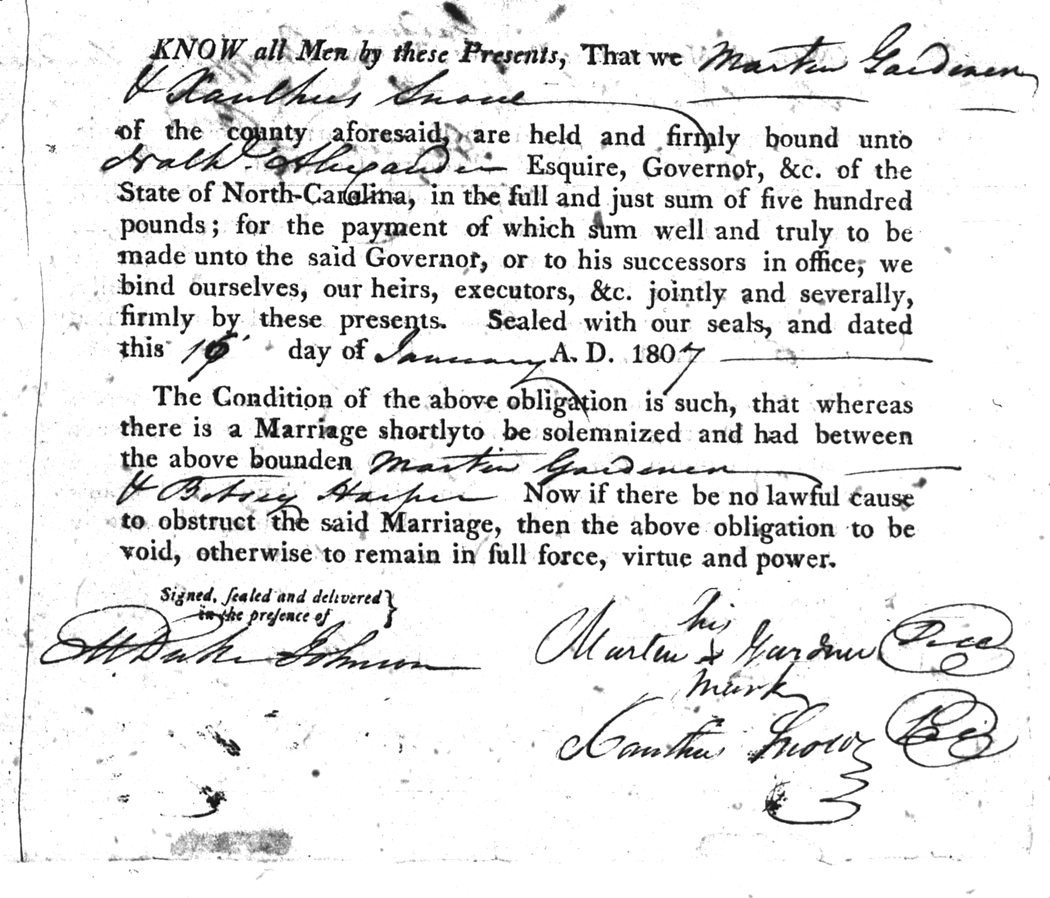 KNOW all Men by these Presents, That we Martin Gardener
& Xanthus Snow
of the county aforesaid, are held and firmly bound unto
Nathl. Alexander Esquire, Governor, &c. of the
State of North-Carolina, in the full and just sum of five hundred
pounds; for the payment of which sum well and truly to be
made unto the said Governor, or to his successors in office, we
bind ourselves, our heirs, executors, &c. jointly and severally,
firmly by these presents. Sealed with our seals, and dated
this day of January A. D. 1807
The Condition of the above obligation is such, that whereas
there is a Marriage shortlyto be solemnized and had between
the above bounden Martin Gardener
& Betsey Harper Now if there be no lawful cause
to obstruct the said Marriage, then the above obligation to be
void, otherwise to remain in full force, virtue and power.
Signed, sealed and delivered }
in the presence of
Johnson
his
Martin Gardner
mark
Xanthus Snow